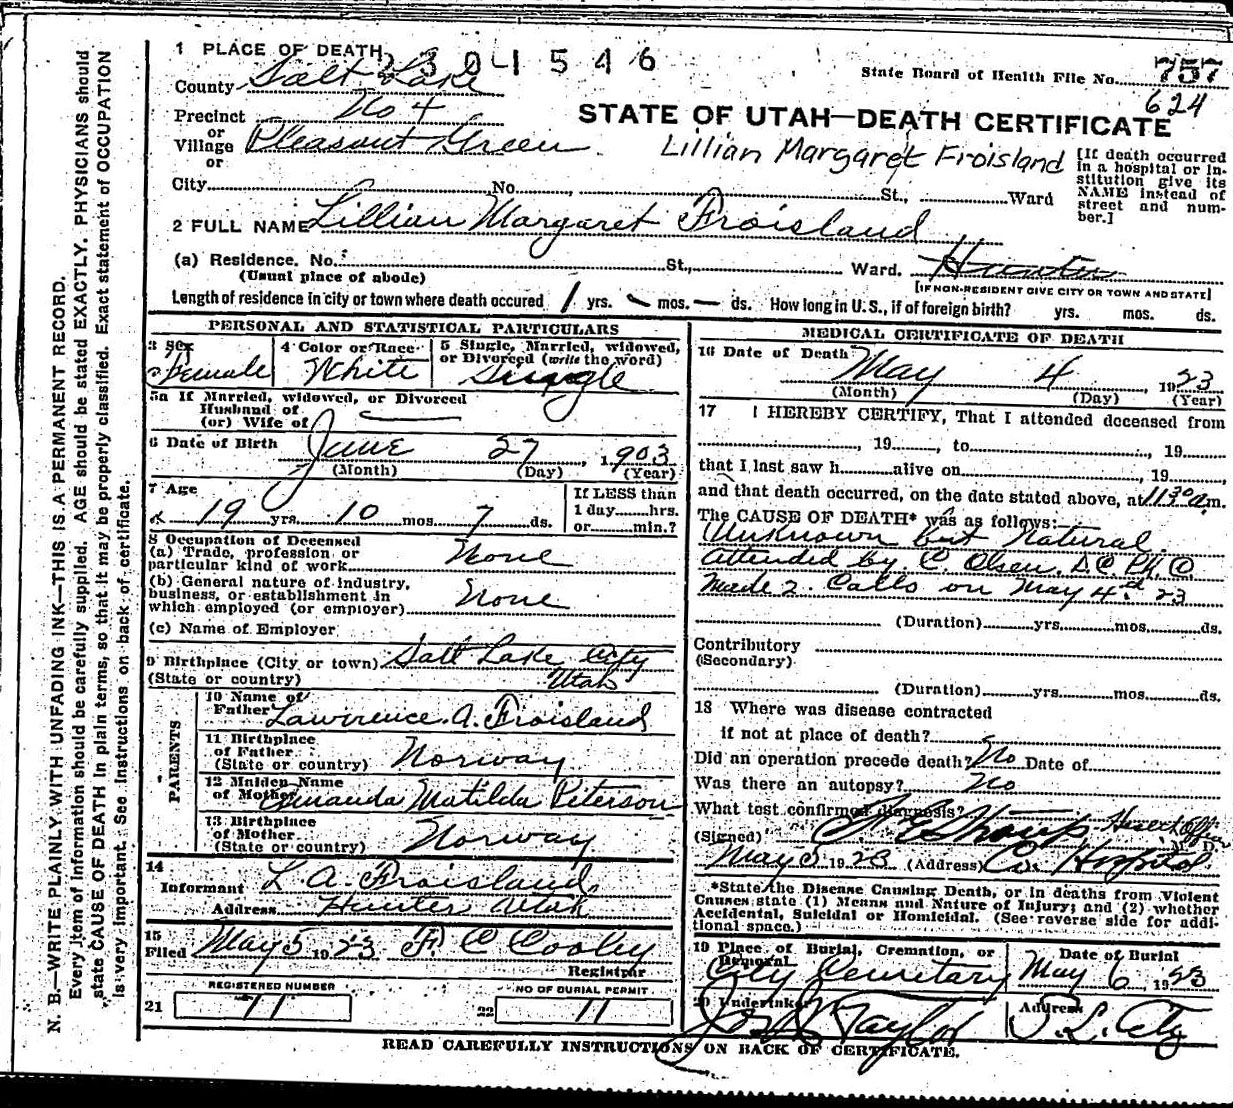 1 PLACE OF DEARTH 2301546
State Board of Health File No. 757
County Salt Lake
624
Precinct No 4
STATE OF UTAH—DEATH CERTIFICATE
or
Village Pleasant Green
Lillian Margaret Froisland
[If death occurred in a hospital or institution give its NAME instead of street and number.]
or
City No. St., Ward
2 FULL NAME Lillian Margaret Froisland
(a) Residence. No. St., Ward. Hunter
(Usual place of abode)
[IF NON-RESIDENT GIVE CITY OR TOWN AND STATE]
Length of residence in city or town where death occured 1 yrs. mos. — ds. How long in U.S., if of foreign birth? yrs. mos. ds.
PERSONAL AND STATISTICAL PARTICULARS
3 Sex
Female
4 Color or Race
White
5 Single, Married, widowed,
or Divorced (write the word)
Single
5a If Married, widowed, or Divorced
Husband of
(or) Wife of
6 Date of Birth June 27, 1903
(Month) (Day) (Year)
7 Age
19 yrs. 10 mos. 7 ds.
If LESS than
1 day hrs.
or min.?
8 Occupation of Deceased
(a) Trade, profession or
particular kind of work None
(b) General nature of industry,
business, or establishment in
which employed (or employer) None
(c) Name of Employer
9 Birthplace (City or town) Salt Lake City
(State or country) Utah
PARENTS
10 Name of
Father Lawrence A. Froisland
11 Birthplace
of Father
(State or country) Norway
12 Maiden Name
of Mother Amanda Matilda Peterson
13 Birthplace
of Mother
(State or country) Norway
14
Informant L. A. Froisland
Address Hunter Utah
15
Filed May 5 1923 F. C Cooley
Registrar
REGISTERED NUMBER
21 11
NO OF BURIAL PERMIT.
22 11
MEDICAL CERTIFICATE OF DEATH
16 Date of Death May 4, 1923
(Month) (Day) (Year)
17 I HEREBY CERTIFY, That I attended deceased from
, 19 , to , 19
that I last saw h alive on , 19
and that death occurred, on the date stated above, at 11 30 a.m.
The CAUSE OF DEATH* was as follows:
Unknown but Natural
attended by C. Olsen. D.C. Ph. C.
Made 2 Calls on May 4th 23
(Duration) yrs. mos. ds.
Contributory
(Secondary)
(Duration) yrs. mos. ds.
18 Where was disease contracted
if not at place of death?
Did an operation precede death? No Date of
Was there an autopsy? No
What test confirmed diagnosis?
(Signed) Health Officer
M. D.
May 5 1923 (Address) Co. Hospital
*State the Disease Causing Death, or in deaths from Violent
Causes state (1) Means and Nature of Injury; and (2) whether
Accidental, Suicidal or Homicidal. (See reverse side for addi-
tional space.)
19 Place of Burial, Cremation, or
Removal
City Cemetary
Date of Burial
May 6, 1923
20 Undertaker
Taylor
Address
S. L. City
READ CAREFULLY INSTRUCTIONS ON BACK OF CERTIFICATE.
N. B.—WRITE PLAINLY WITH UNFADING INK—THIS IS A PERMANENT RECORD.
Every item of information should be carefully supplied. AGE should be stated EXACTLY. PHYSICIANS should
state CAUSE OF DEATH in plain terms, so that it may be properly classified. Exact statement of OCCUPATION
is very important. See instructions on back of certificate.